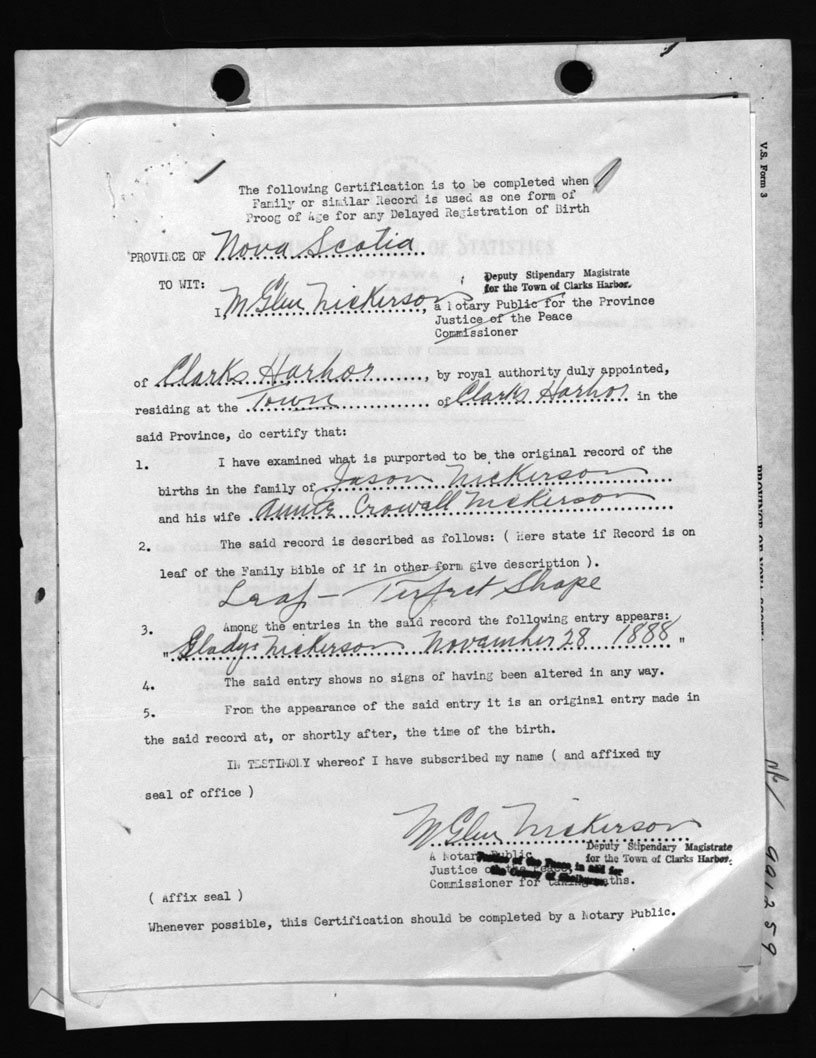 V.S. Form 3
The following Certification is to be completed when
Family or similar Record is used as one form of
Proog of Age for any Delayed Registration of Birth
PROVINCE OF Nova Scotia
TO WIT:
Deputy Stipendary Magistrate
for the Town of Clarks Harbor.
I, M Glen Nickerson, a Notary Public for the Province
Justice of the Peace
Commissioner
of Clarks Harbor, by royal authority duly appointed,
residing at the Town of Clarks Harbor in the
said Province, do certify that:
1. I have examined what is purported to be the original record of the
births in the family of Jason Nickerson
and his wife Annie Crowell Nickerson
2. The said record is described as follows: ( Here state if Record is on
leaf of the Family Bible of if in other form give description ).
Leaf - Perfect Shape
3. Among the entries in the said record the following entry appears:
" Gladys Nickerson November 28 1888 "
4. The said entry shows no signs of having been altered in any way.
5. From the appearance of the said entry it is an original entry made in
the said record at, or shortly after, the time of the birth.
IN TESTIMONY whereof I have subscribed my name ( and affixed my
seal of office )
M Glen Nickerson
A Notary Public
Deputy Stipendary Magistrate
for the Town of Clarks Harbor.
Justice of the Peace, in and for
the County of Shelburne
Commissioner for taking oaths.
( Affix seal )
Whenever possible, this Certification should be completed by a Notary Public.
991259